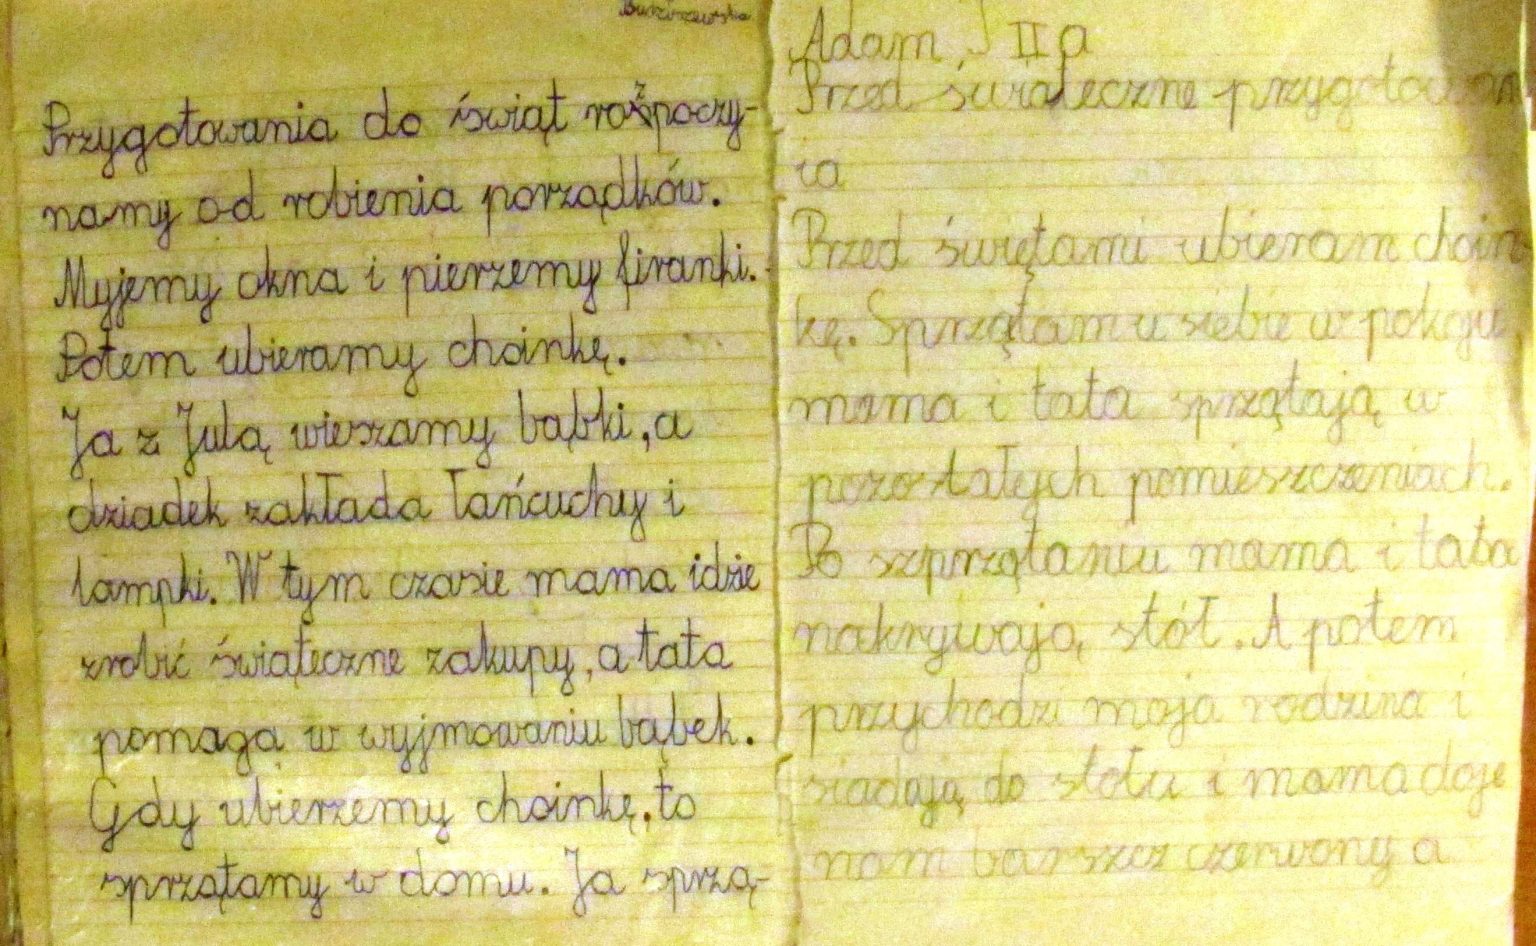 Przygotowania do świąt rozpoczy-
namy od robienia porządków.
Myjemy okna i pierzemy firanki.
Potem ubieramy choinkę.
Ja z Julą wieszamy bąbki, a
dziadek zakłada łańcuchy i
lampki. W tym czasie mama idzie
zrobić świąteczne zakupy, a tata
pomaga w wyjmowaniu bąbek.
Gdy ubierzemy choinkę, to
sprzątamy w domu. Ja sprzą-
Adam J IIa
Przed świąteczne przygotowan
ia
Przed świętami ubieram choin
kę. Sprzątam u siebie w pokoju
mama i tata sprzątają w
pozostałych pomieszczeniach.
Po szprzątaniu mama i tata
nakrywają stół. A potem
przychodzi moja rodzina i
siadają do stołu i mama daje
nam barszcz czerwony a